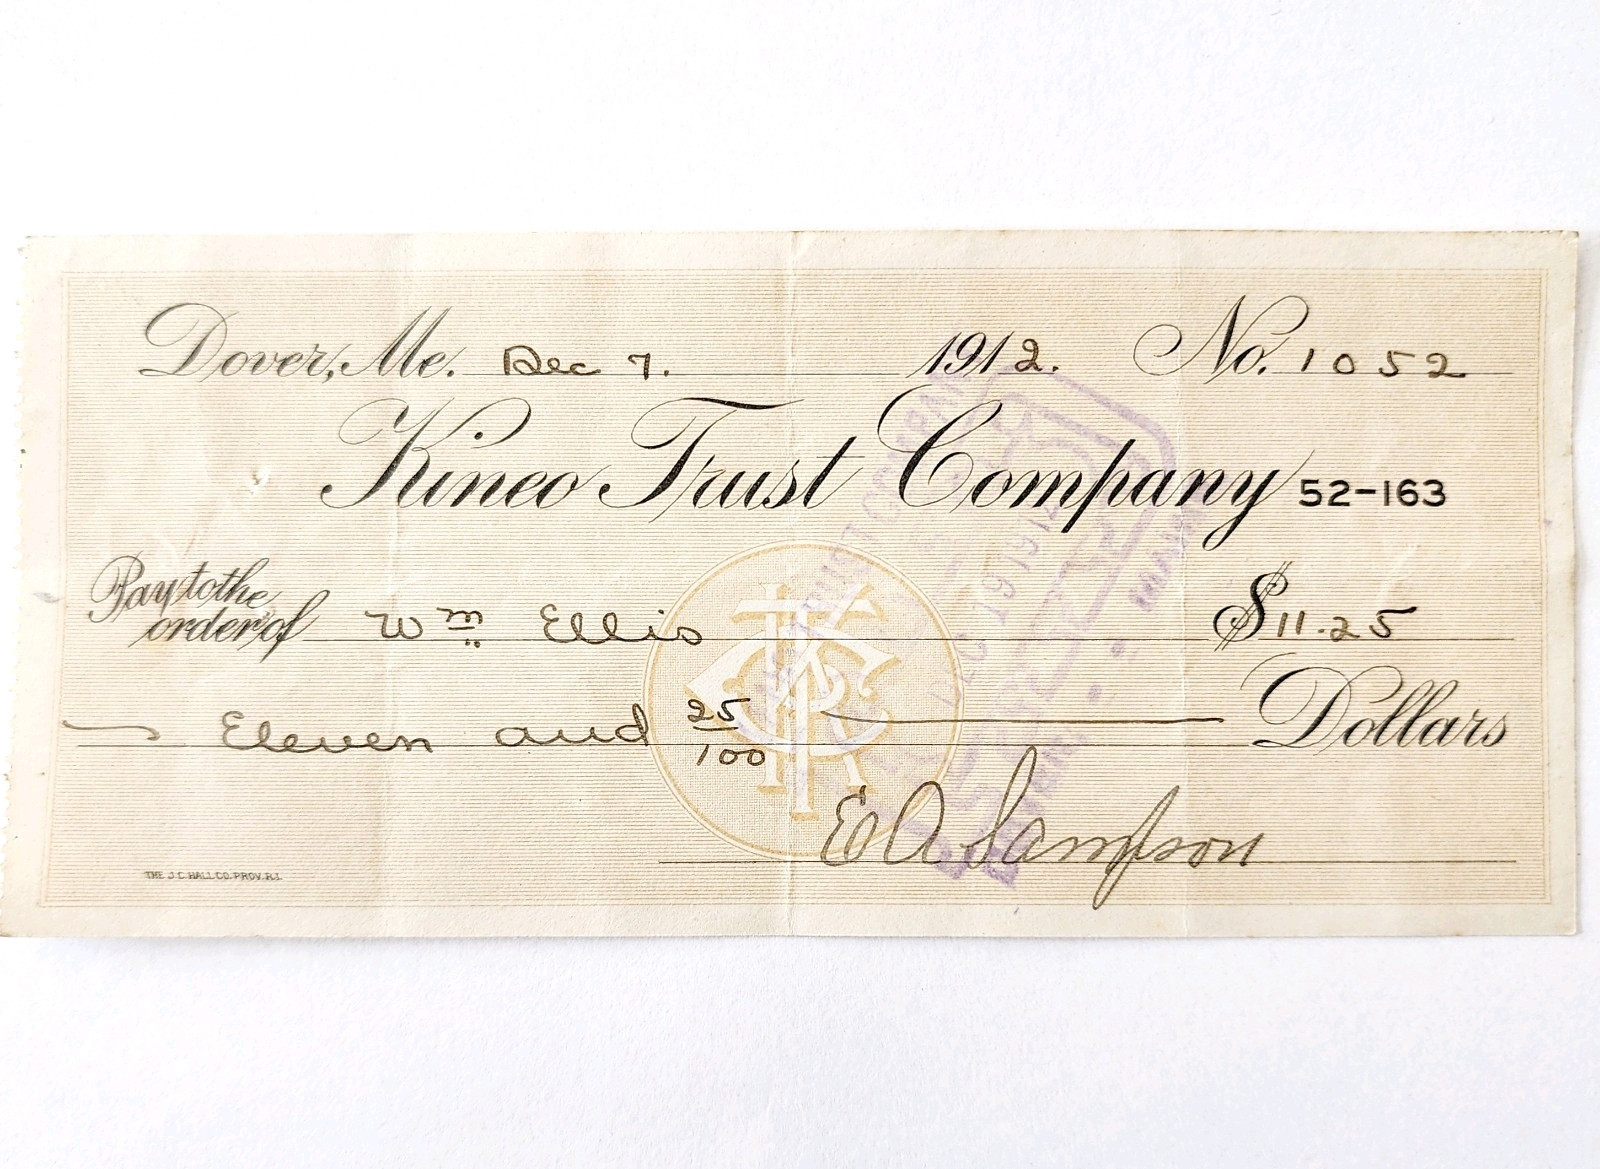 Dover, Me. Dec 7. 1912. No. 1052
Kineo Trust Company 52-163
Pay to the
order of Wm Ellis $11.25
Eleven and 25/100 Dollars
E A Sampson
THE J.C. HALL CO. PROV. R.I.
TRUST COMPANY
DEC 19 1912
DOVER MAINE
KTC